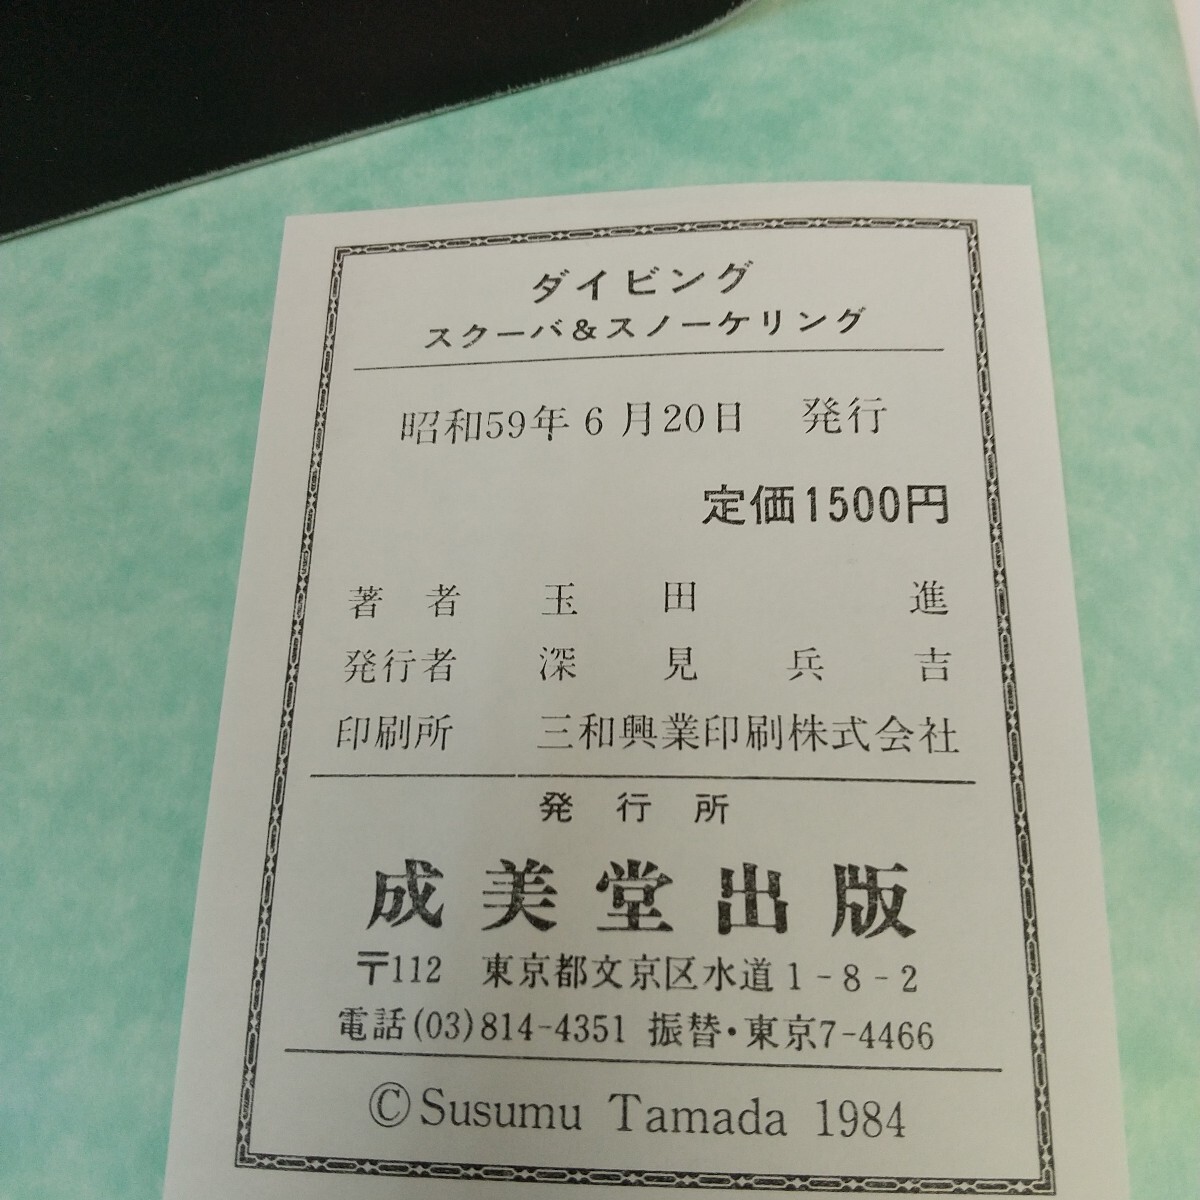 ダイビング
スクーバ&スノーケリング
昭和59年6月20日 発行
定価1500円
著者 玉田 進
発行者 深見兵吉
印刷所 三和興業印刷株式会社
発行所
成美堂出版
〒112 東京都文京区水道1-8-2
電話(03)814-4351 振替・東京7-4466
©Susumu Tamada 1984